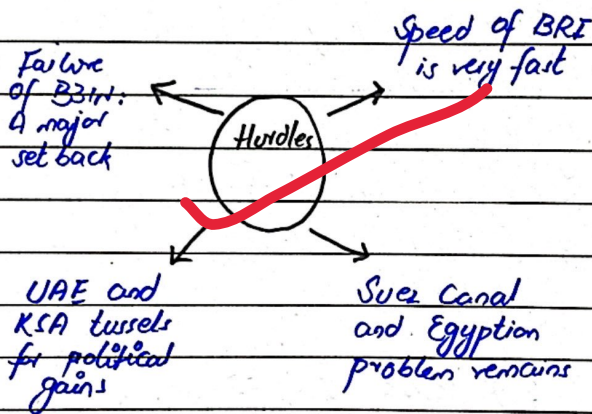 Failure
of B3W:
A major
set back
Speed of BRI
is very fast
Hurdles
UAE and
KSA tussels
for political
gains
Suez Canal
and Egyption
problem remains